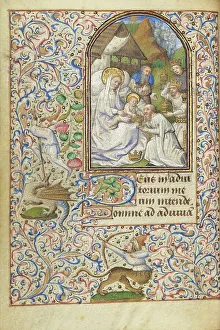 Deus in adiu
torium me
um intende
omine ad adiuva